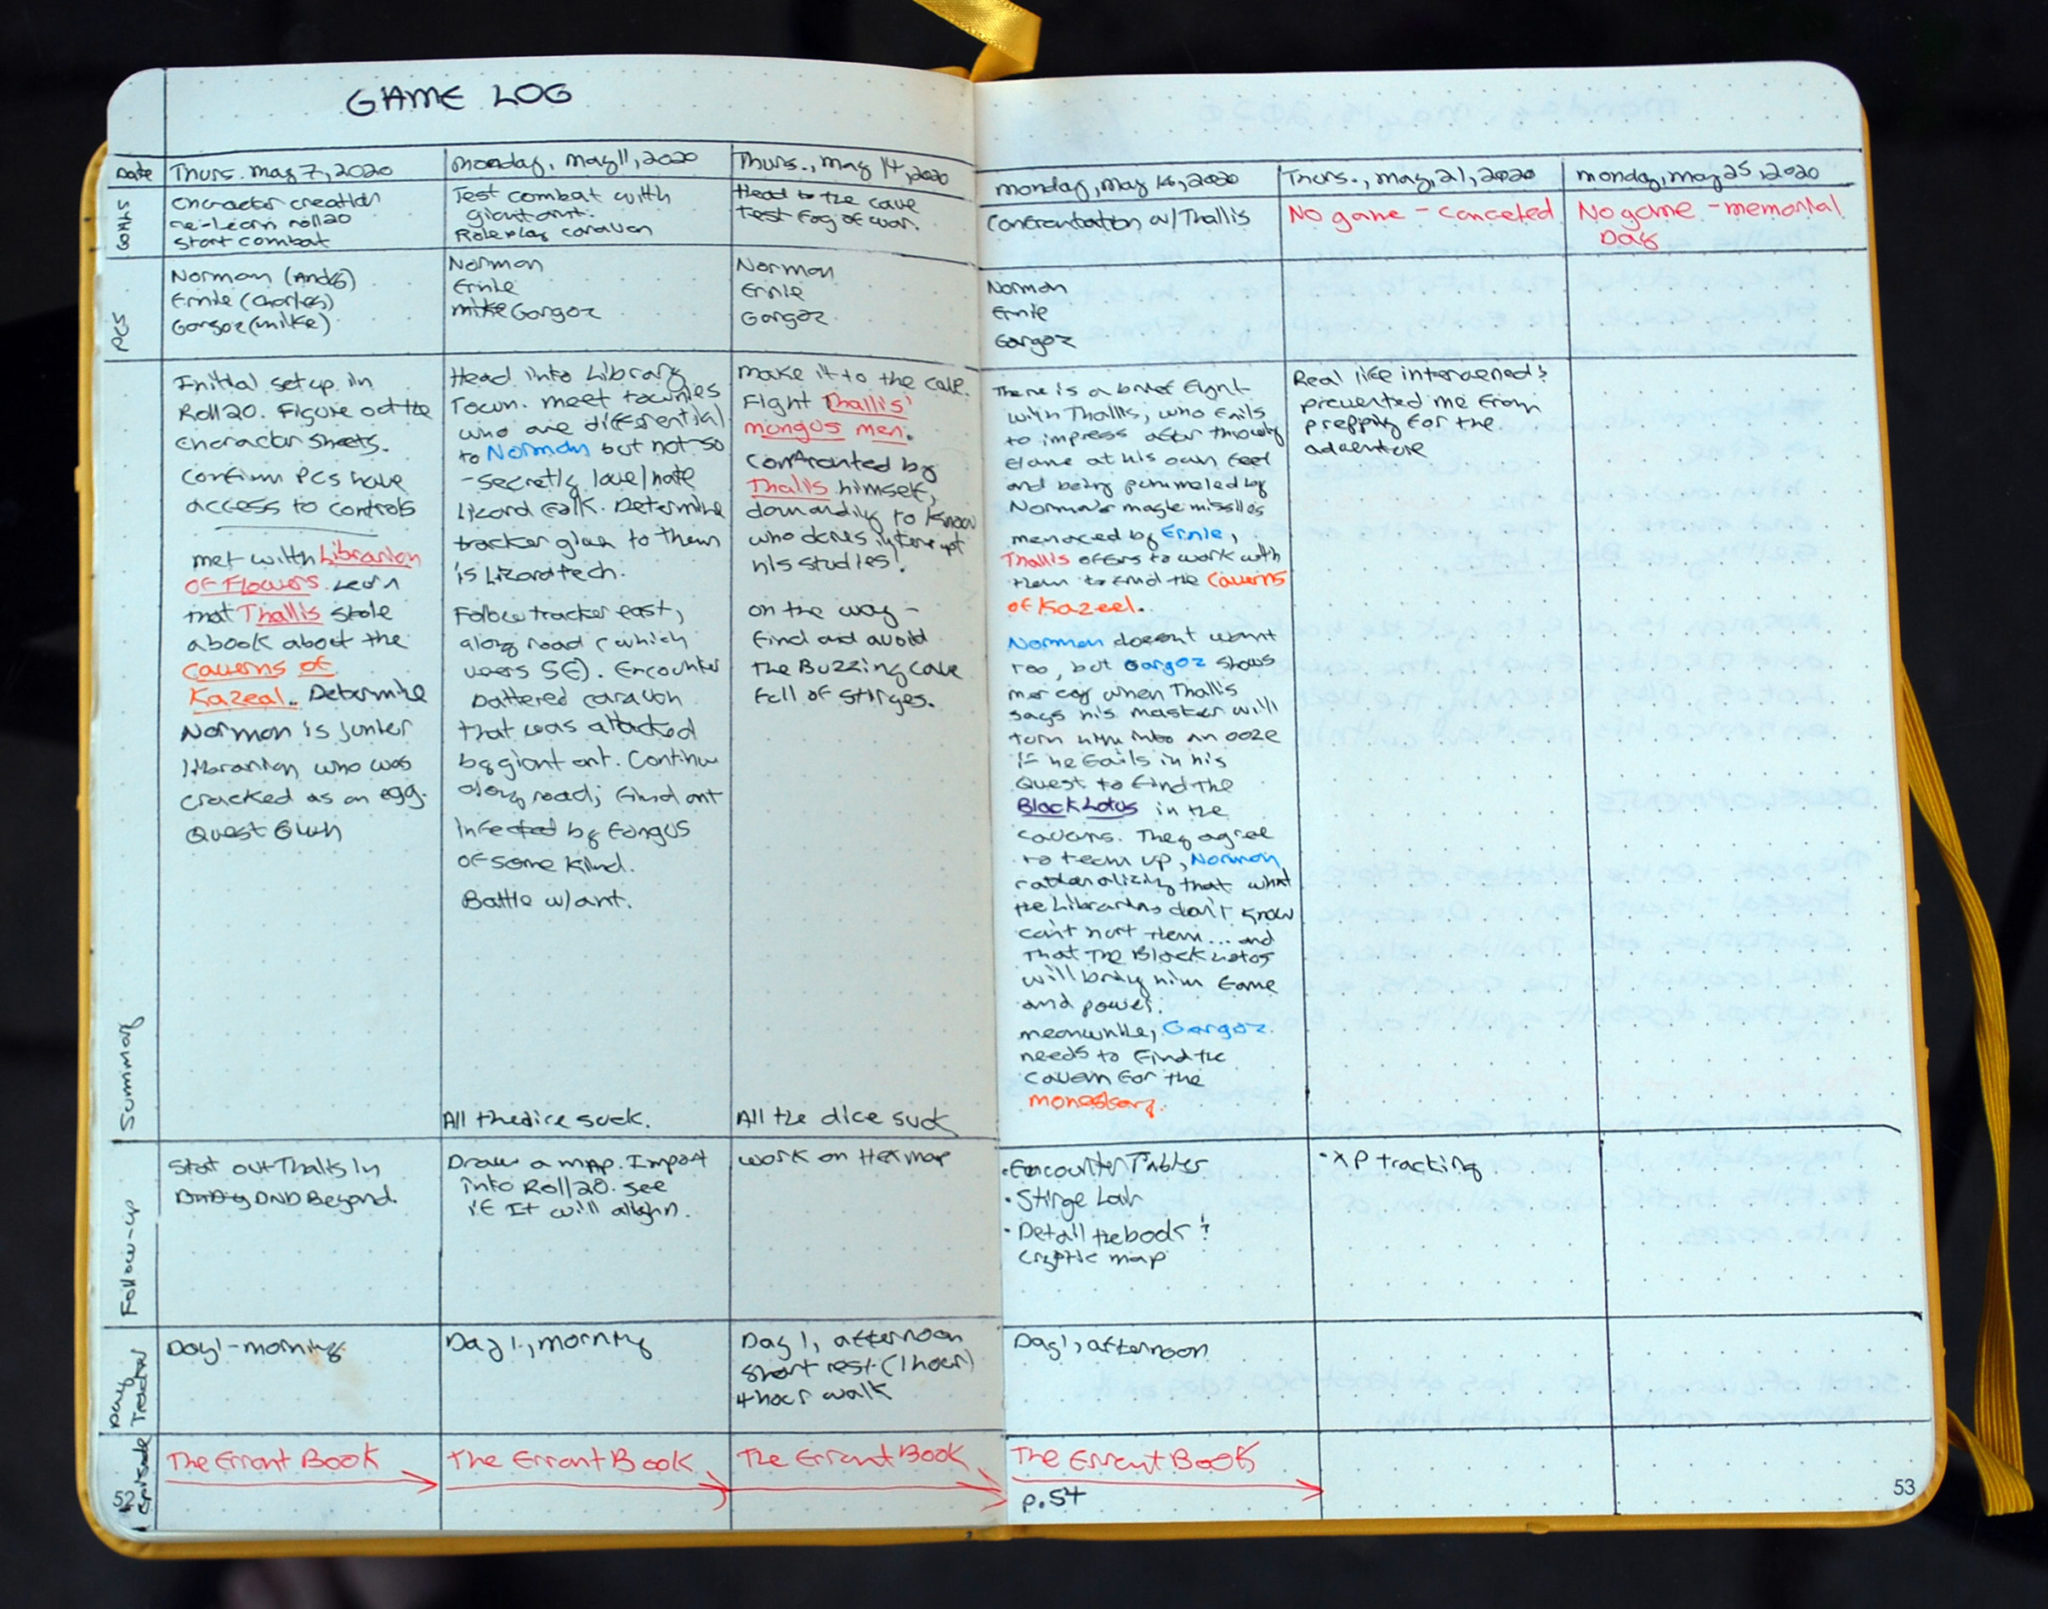 GAME LOG
Date
Thurs. May 7, 2020
Goals
Character creation
re-learn roll20
start combat
PCs
Norman (Andy)
Ernie (Charles)
Gorgoz (Mike)
Summary
Initial set up in
Roll20. Figure out the
character sheets.
Confirm PCs have
access to controls
met with Librarian
of Flowers. Learn
that Thallis stole
a book about the
Caverns of
Kazeal. Determine
Norman is junior
librarian who was
cracked as an egg.
Quest Given
Follow-up
Stat out Thallis in
DND Beyond.
Day Tracker
Day 1 - morning
Episode
The Errant Book
52
Monday, May 11, 2020
Test combat with
giant ant.
Roleplay caravan
Norman
Ernie
mike Gorgoz
Head into Library
Town. Meet townies
who are differential
to Norman but not so
- secretly love/hate
lizard folk. Determine
tracker given to them
is Lizardtech.
Follow tracker east,
along road (which
veers SE). Encounter
battered caravan
that was attacked
by giant ant. Continue
along road; find ant
infected by fungus
of some kind.
Battle w/ant.
All the dice suck.
Draw a map. Import
into Roll20. See
if it will align.
Day 1, morning
The Errant Book
Thurs., May 14, 2020
Head to the cave
Test fog of war.
Norman
Ernie
Gorgoz
make it to the cave.
Fight Thallis'
mongus men.
Confronted by
Thallis himself,
demanding to know
who dares interrupt
his studies.
on the way -
find and avoid
the Buzzing Cave
full of stirges.
All the dice suck
work on Hexmap
Day 1, afternoon
short rest (1 hour)
4 hour walk
The Errant Book
monday, may 18, 2020
Confrontation w/Thallis
Norman
Ernie
Gorgoz
There is a brief fight
with Thallis, who fails
to impress after throwing
flame at his own feet
and being pummeled by
Norman's magic missiles
menaced by Ernie,
Thallis offers to work with
them to find the Caverns
of Kazeel.
Norman doesn't want
too, but Gorgoz shows
mercy when Thallis
says his master will
turn him into an ooze
if he fails in his
Quest to find the
Black Lotus in the
caverns. They agree
to team up, Norman
rationalizing that what
the Librarians don't know
can't hurt them... and
that the Black Lotus
will bring him fame
and power.
meanwhile, Gorgoz
needs to find the
cavern for the
monestary.
• Encounter Tables
• Stirge Lair
• Detail the book &
cryptic map
Day 1, afternoon
The Errant Book
p.54
Thurs., May, 21, 2020
No game - canceled
Real life intervened &
prevented me from
prepping for the
adventure
• XP tracking
monday, may 25, 2020
No game - memorial
Day
53